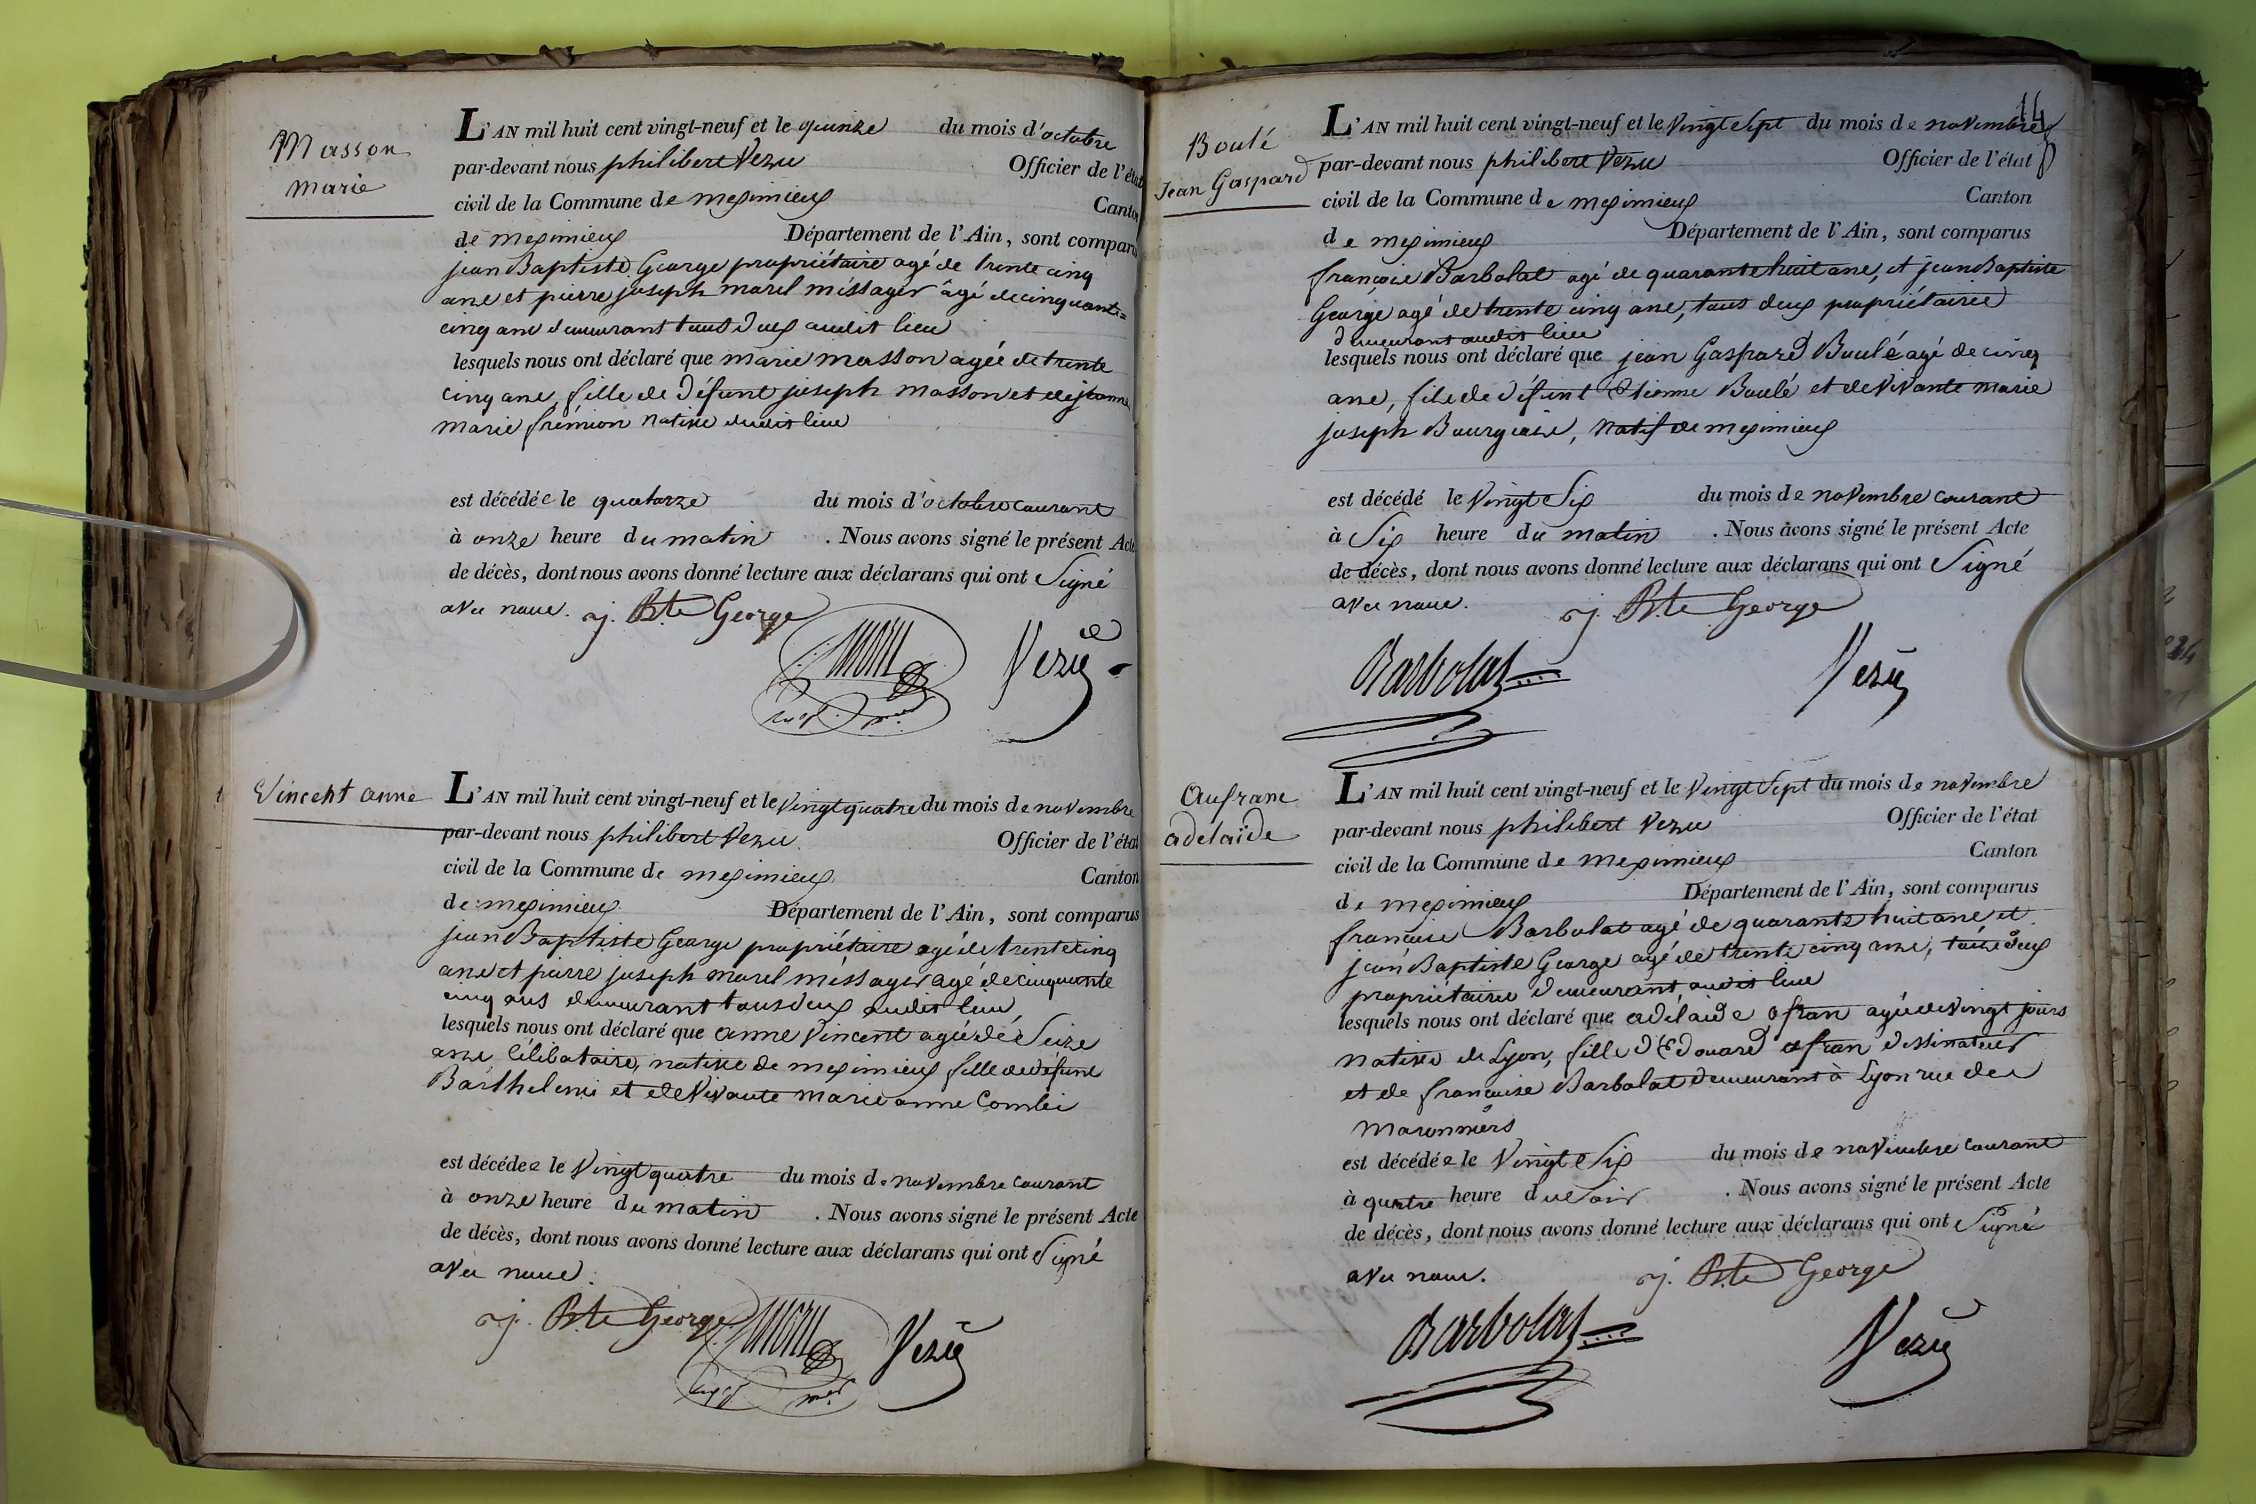 Masson
marie
L'AN mil huit cent vingt-neuf et le quinze du mois d'octobre
par-devant nous philibert Vezu Officier de l'état
civil de la Commune de meximieux Canton
de meximieux Département de l'Ain, sont comparus
jean Baptiste George propriétaire agé de trente cinq
ans et pierre joseph morel méssager âgé de cinquante=
cinq ans demeurant tous deux audit lieu
lesquels nous ont déclaré que marie masson agée de trente
cinq ans, fille de Défunt joseph masson et de jeanne
marie frémion native dudit lieu
est décédée le quatorze du mois d'octobre courant
à onze heure du matin . Nous avons signé le présent Acte
de décès, dont nous avons donné lecture aux déclarans qui ont Signé
avec nous. j. Bte George
Vezu
Vincent anne
L'AN mil huit cent vingt-neuf et le Vingt quatre du mois de novembre
par-devant nous philibert Vezu Officier de l'état
civil de la Commune de meximieux Canton
de meximieux Département de l'Ain, sont comparus
jean Baptiste George propriétaire agé de trente cinq
ans et pierre joseph morel méssager agé de cinquante
cinq ans demeurant tous deux audit lieu
lesquels nous ont déclaré que anne Vincent agée de Seize
ans Célibataire, native de meximieux fille de défunt
Barthelemi et de Vivante marie anne Combe
est décédée le Vingt quatre du mois de novembre courant
à onze heure du matin . Nous avons signé le présent Acte
de décès, dont nous avons donné lecture aux déclarans qui ont Signé
avec nous.
j. Bte George Vezu
14
Boulé
Jean Gaspard
L'AN mil huit cent vingt-neuf et le Vingt Sept du mois de novembre
par-devant nous philibert Vezu Officier de l'état
civil de la Commune de meximieux Canton
de meximieux Département de l'Ain, sont comparus
françois Barbolat agé de quarante huit ans, et jean Baptiste
George agé de trente cinq ans, tous deux propriétaires
demeurant audit lieu
lesquels nous ont déclaré que jean Gaspard Boulé agé de cinq
ans, fils de défunt Etienne Boulé et de Vivante marie
joseph Bourgeois, natif de meximieux
est décédé le Vingt Six du mois de novembre courant
à Six heure du matin . Nous avons signé le présent Acte
de décès, dont nous avons donné lecture aux déclarans qui ont Signé
avec nous. j. Bte George
Barbolat Vezu
Aufrane
adelaïde
L'AN mil huit cent vingt-neuf et le Vingt Sept du mois de novembre
par-devant nous philibert Vezu Officier de l'état
civil de la Commune de meximieux Canton
de meximieux Département de l'Ain, sont comparus
françois Barbolat agé de quarante huit ans et
jean Baptiste George agé de trente cinq ans, tous deux
propriétaires demeurant audit lieu
lesquels nous ont déclaré que adélaïde ofran agée de Vingt jours
native de Lyon, fille d'Edouard ofran dessinateur
et de françoise Barbolat demeurant à Lyon rue des
maronniers
est décédée le Vingt Six du mois de novembre courant
à quatre heure du Soir . Nous avons signé le présent Acte
de décès, dont nous avons donné lecture aux déclarans qui ont Signé
avec nous. j. Bte George
Barbolat Vezu